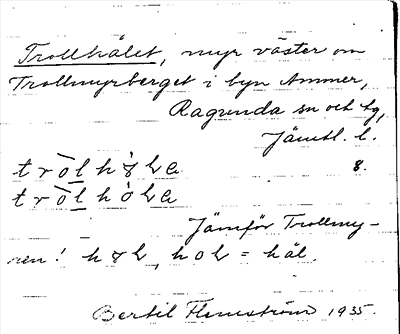 Trollhålet, myr väster om
Trollmyrberget i byn Ammer,
Ragunda sn och tg,
Jämtl. l.
tròlhòla 8.
tròlhòla
Jämför Trollmy-
ren! hol, hol = hål.
Bertil Flemström 1935.